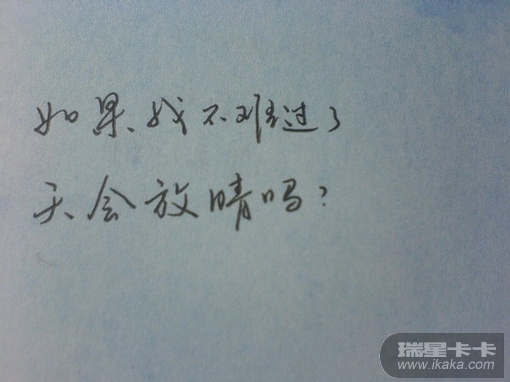 如果、我不难过了
天会放晴吗?
瑞星卡卡
www.ikaka.com